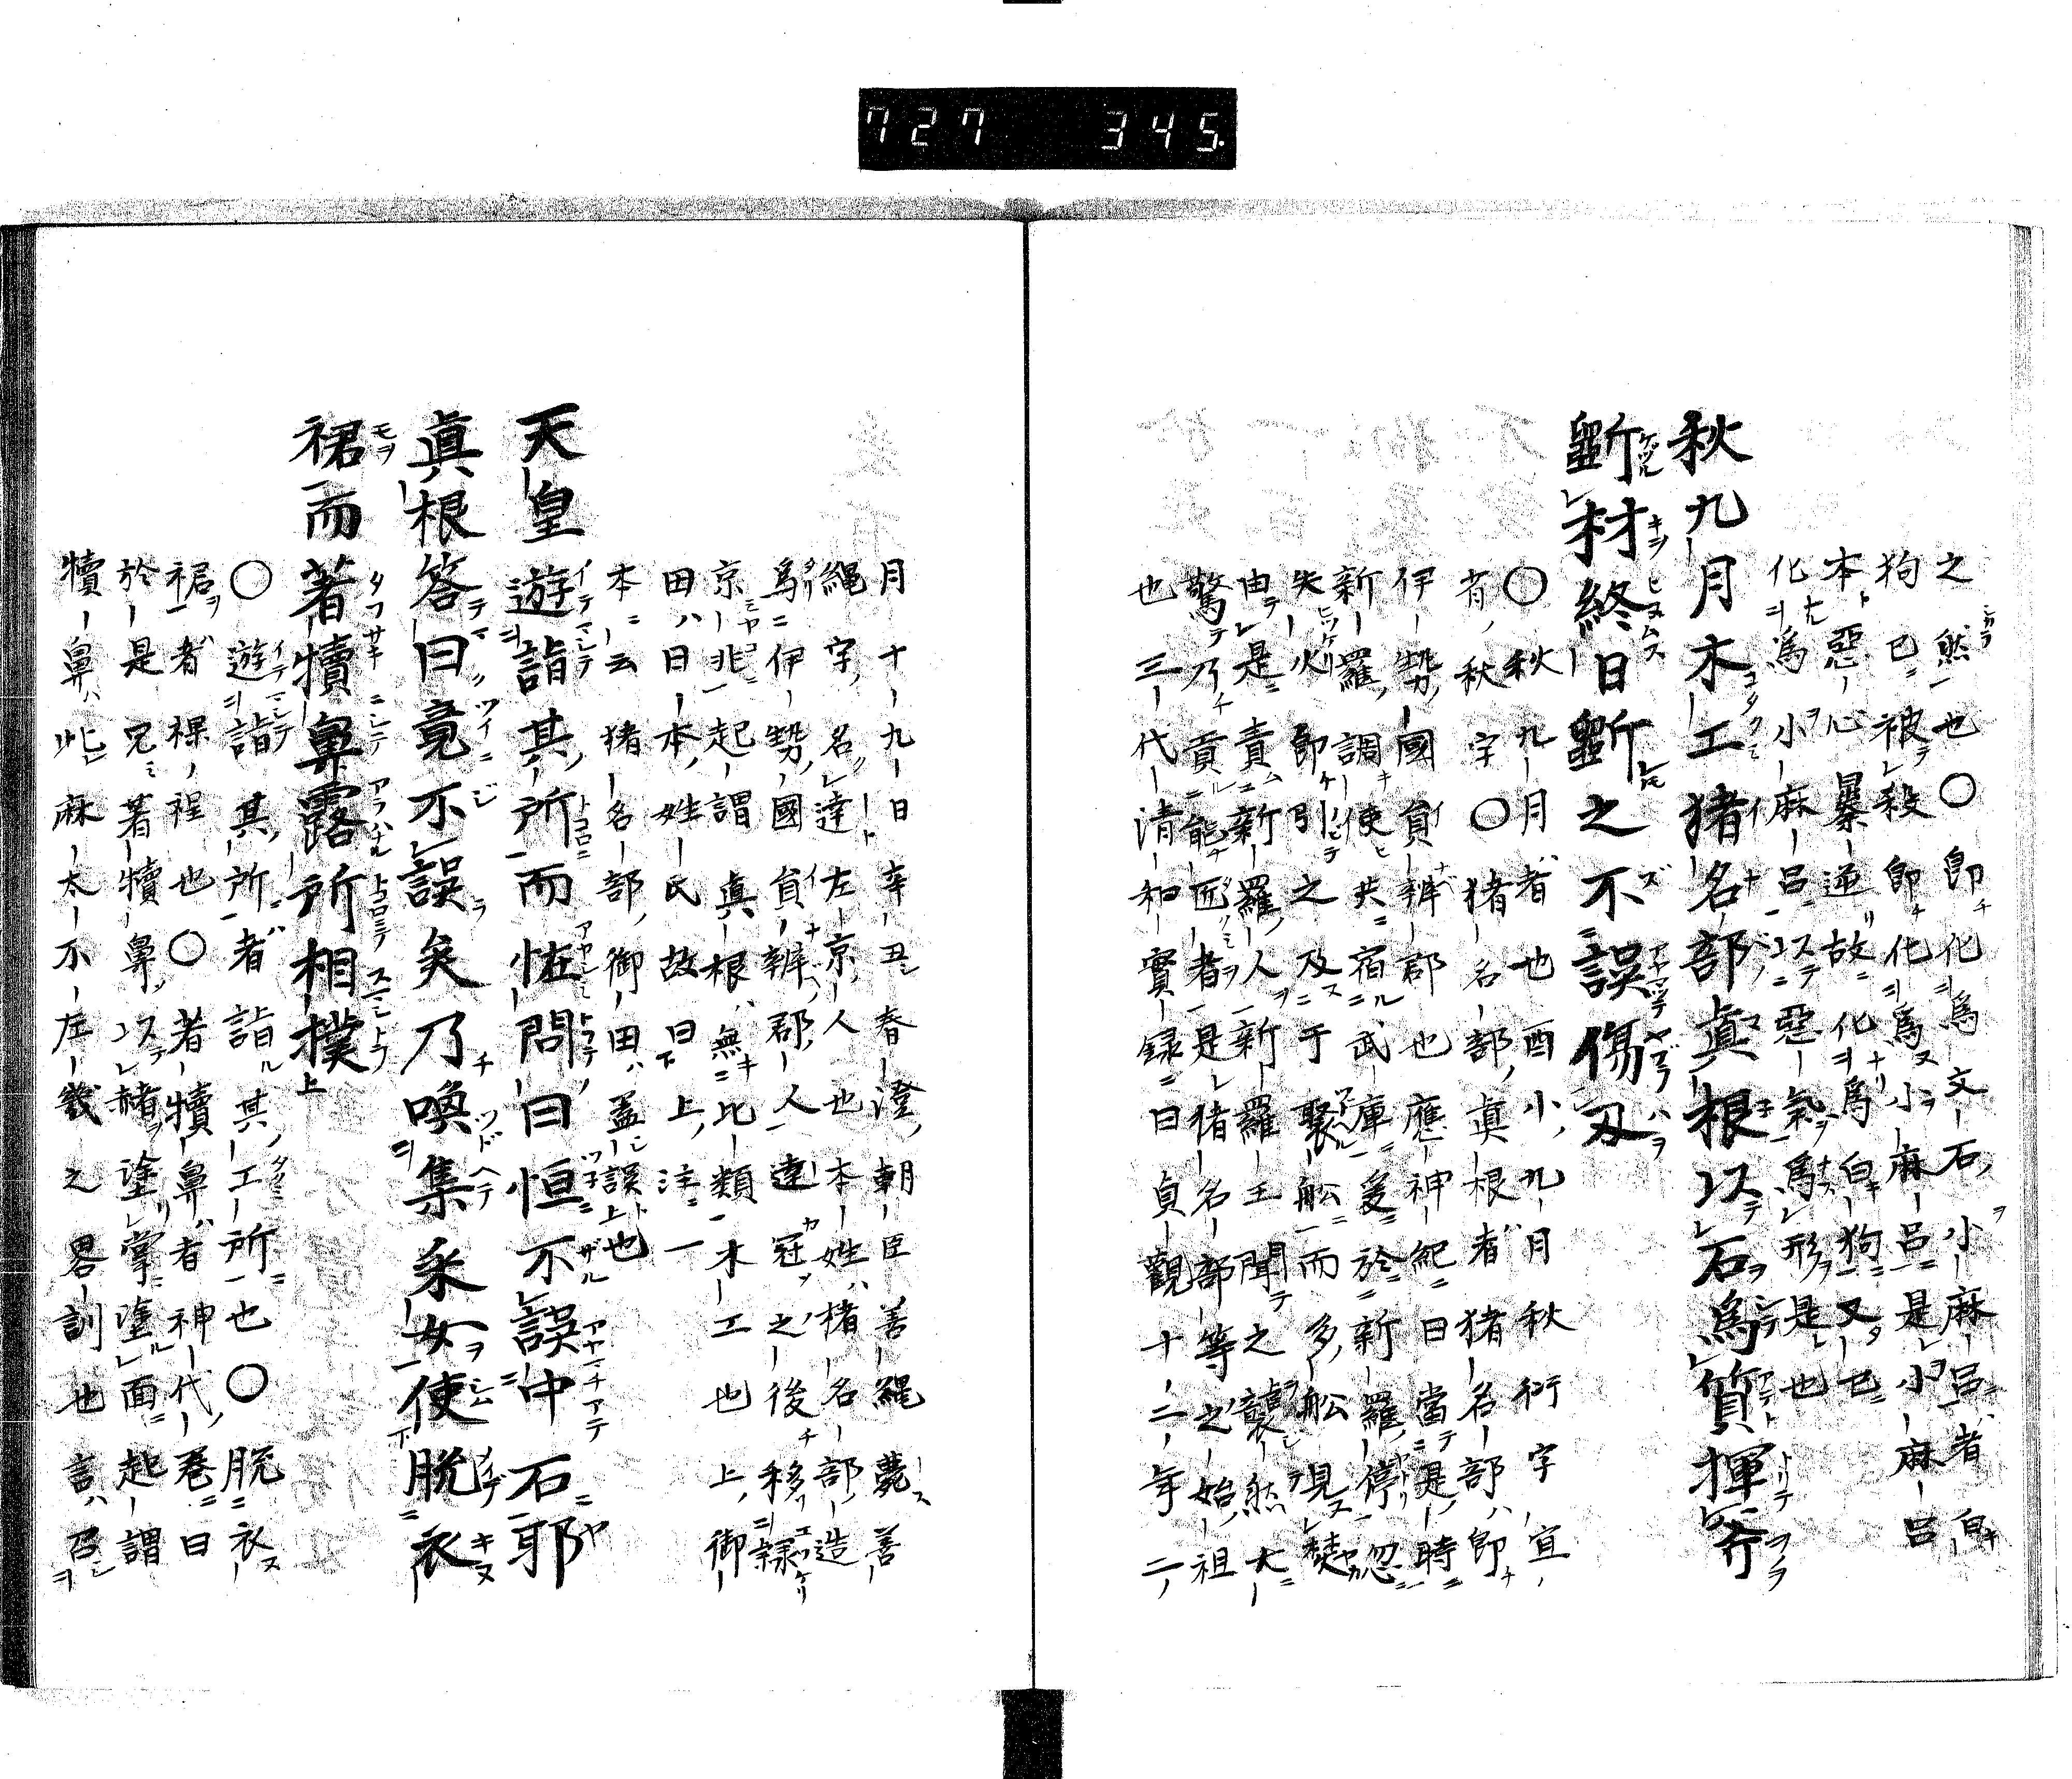 727 345.
之然也○即化為文石小麻呂者白
狗已被殺即化為小麻呂是小麻呂
本惡心暴逆故化為白狗又已
化為小麻呂以惡氣為形是也
秋九月木工猪名部真根以石為質揮斧
斲材終日斲之不誤傷刃
○秋九月者也酉小九月秋衍字宜
省秋字○猪名部真根者猪名部即
伊勢國員辨郡也應神紀曰當是時
新羅調使共宿武庫爰於新羅停忽
失火即引之及于聚舩而多舩見焚
由是責新羅人新羅王聞之讋然大
驚乃貢能匠者是猪名部等之始祖
也三代清和實録曰貞觀十二年二
月十九日辛丑春澄朝臣善繩薨善
繩字名達左京人也本姓猪名部造
為伊勢國員辨郡人達冠之後移隸
京兆起謂真根無比類木工也上御
田日本姓氏故曰上注一
本云猪名部御田蓋誤也
天皇遊詣其所而恠問曰恒不誤中石耶
真根答曰竟不誤矣乃喚集采女使脱衣
裙而著犢鼻露所相撲
○遊詣其所者詣其工所也○脱衣
裙者裸裎也○著犢鼻者神代卷曰
於是兄著犢鼻以赭塗掌塗面起謂
犢鼻此麻太不左岐之畧訓也言召